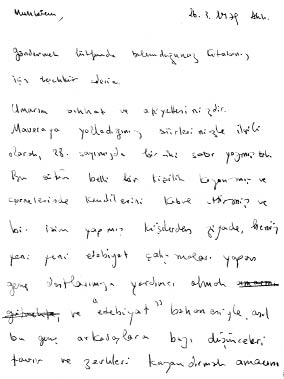 Muhterem,
26.3.1979 Ank.
göndermek lütfunda bulunduğunuz kitabınız
için teşekkür ederim.
Umarım sıhhat ve afiyettesinizdir.
Maveraya yolladığınız şiirlerinizle ilgili
olarak, 28. sayımızda bir iki satır yazmıştık.
Bu sütun belli bir kişilik kazanmış ve
çevrelerinde kendilerini kabul ettirmiş ve
bir isim yapmış kişilerden ziyade, henüz
yeni yeni edebiyat çalışmaları yapan
genç dostlarımıza yardımcı olmak amacını
ve "edebiyat" bahanesiyle, asıl
bu genç arkadaşlara bazı düşünceleri
tavır ve zevkleri kazandırmak amacını